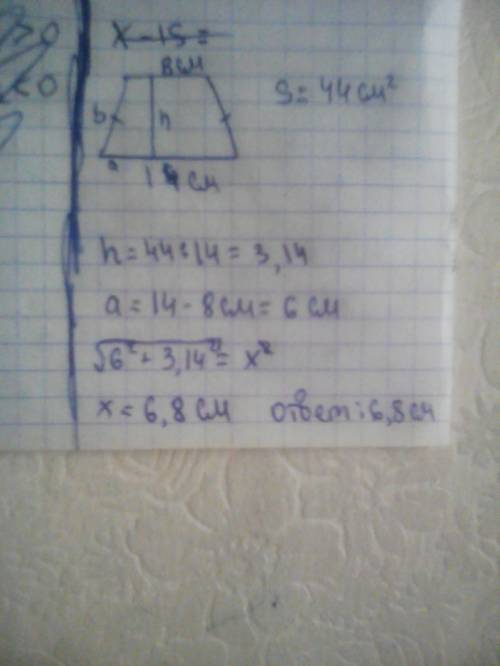 >0
<0
x-15=
8см
S=44см²
b
h
a
14 см
h=44:14=3,14
a=14-8см=6см
√6²+3,14²=x²
x=6,8см ответ:6,8см